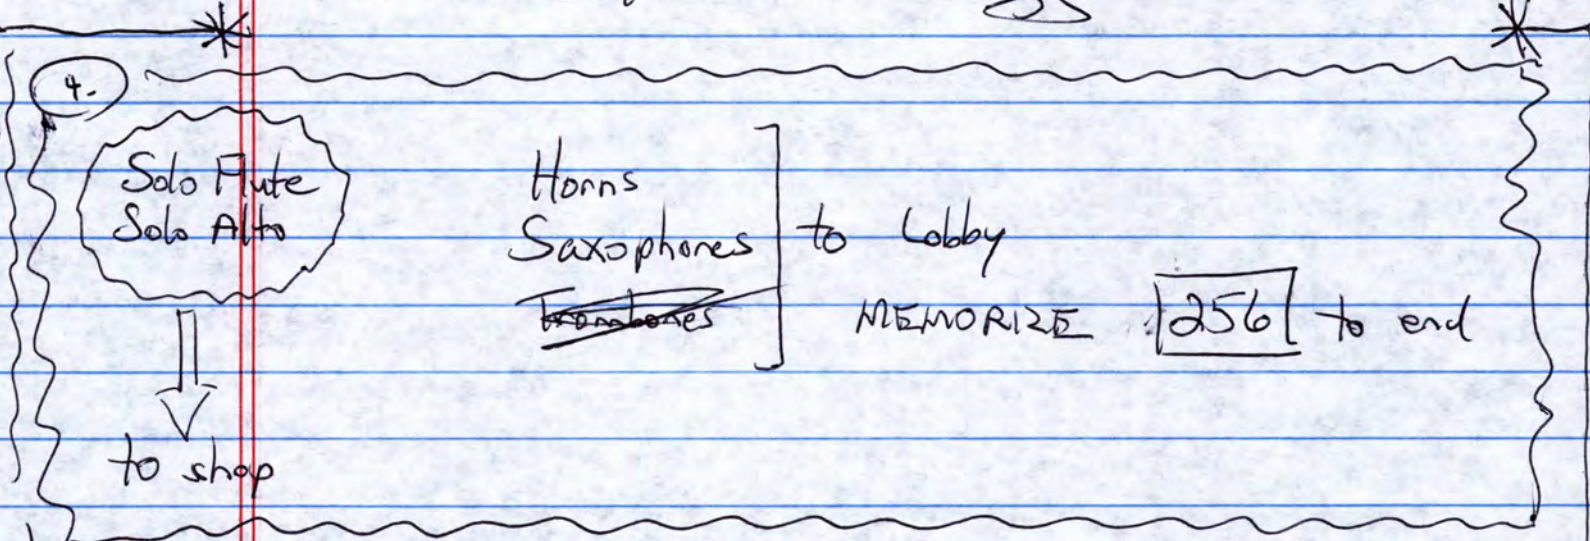 4.
Solo Flute
Solo Alto
to shop
Horns
Saxophones
Trombones
to Lobby
MEMORIZE 256 to end